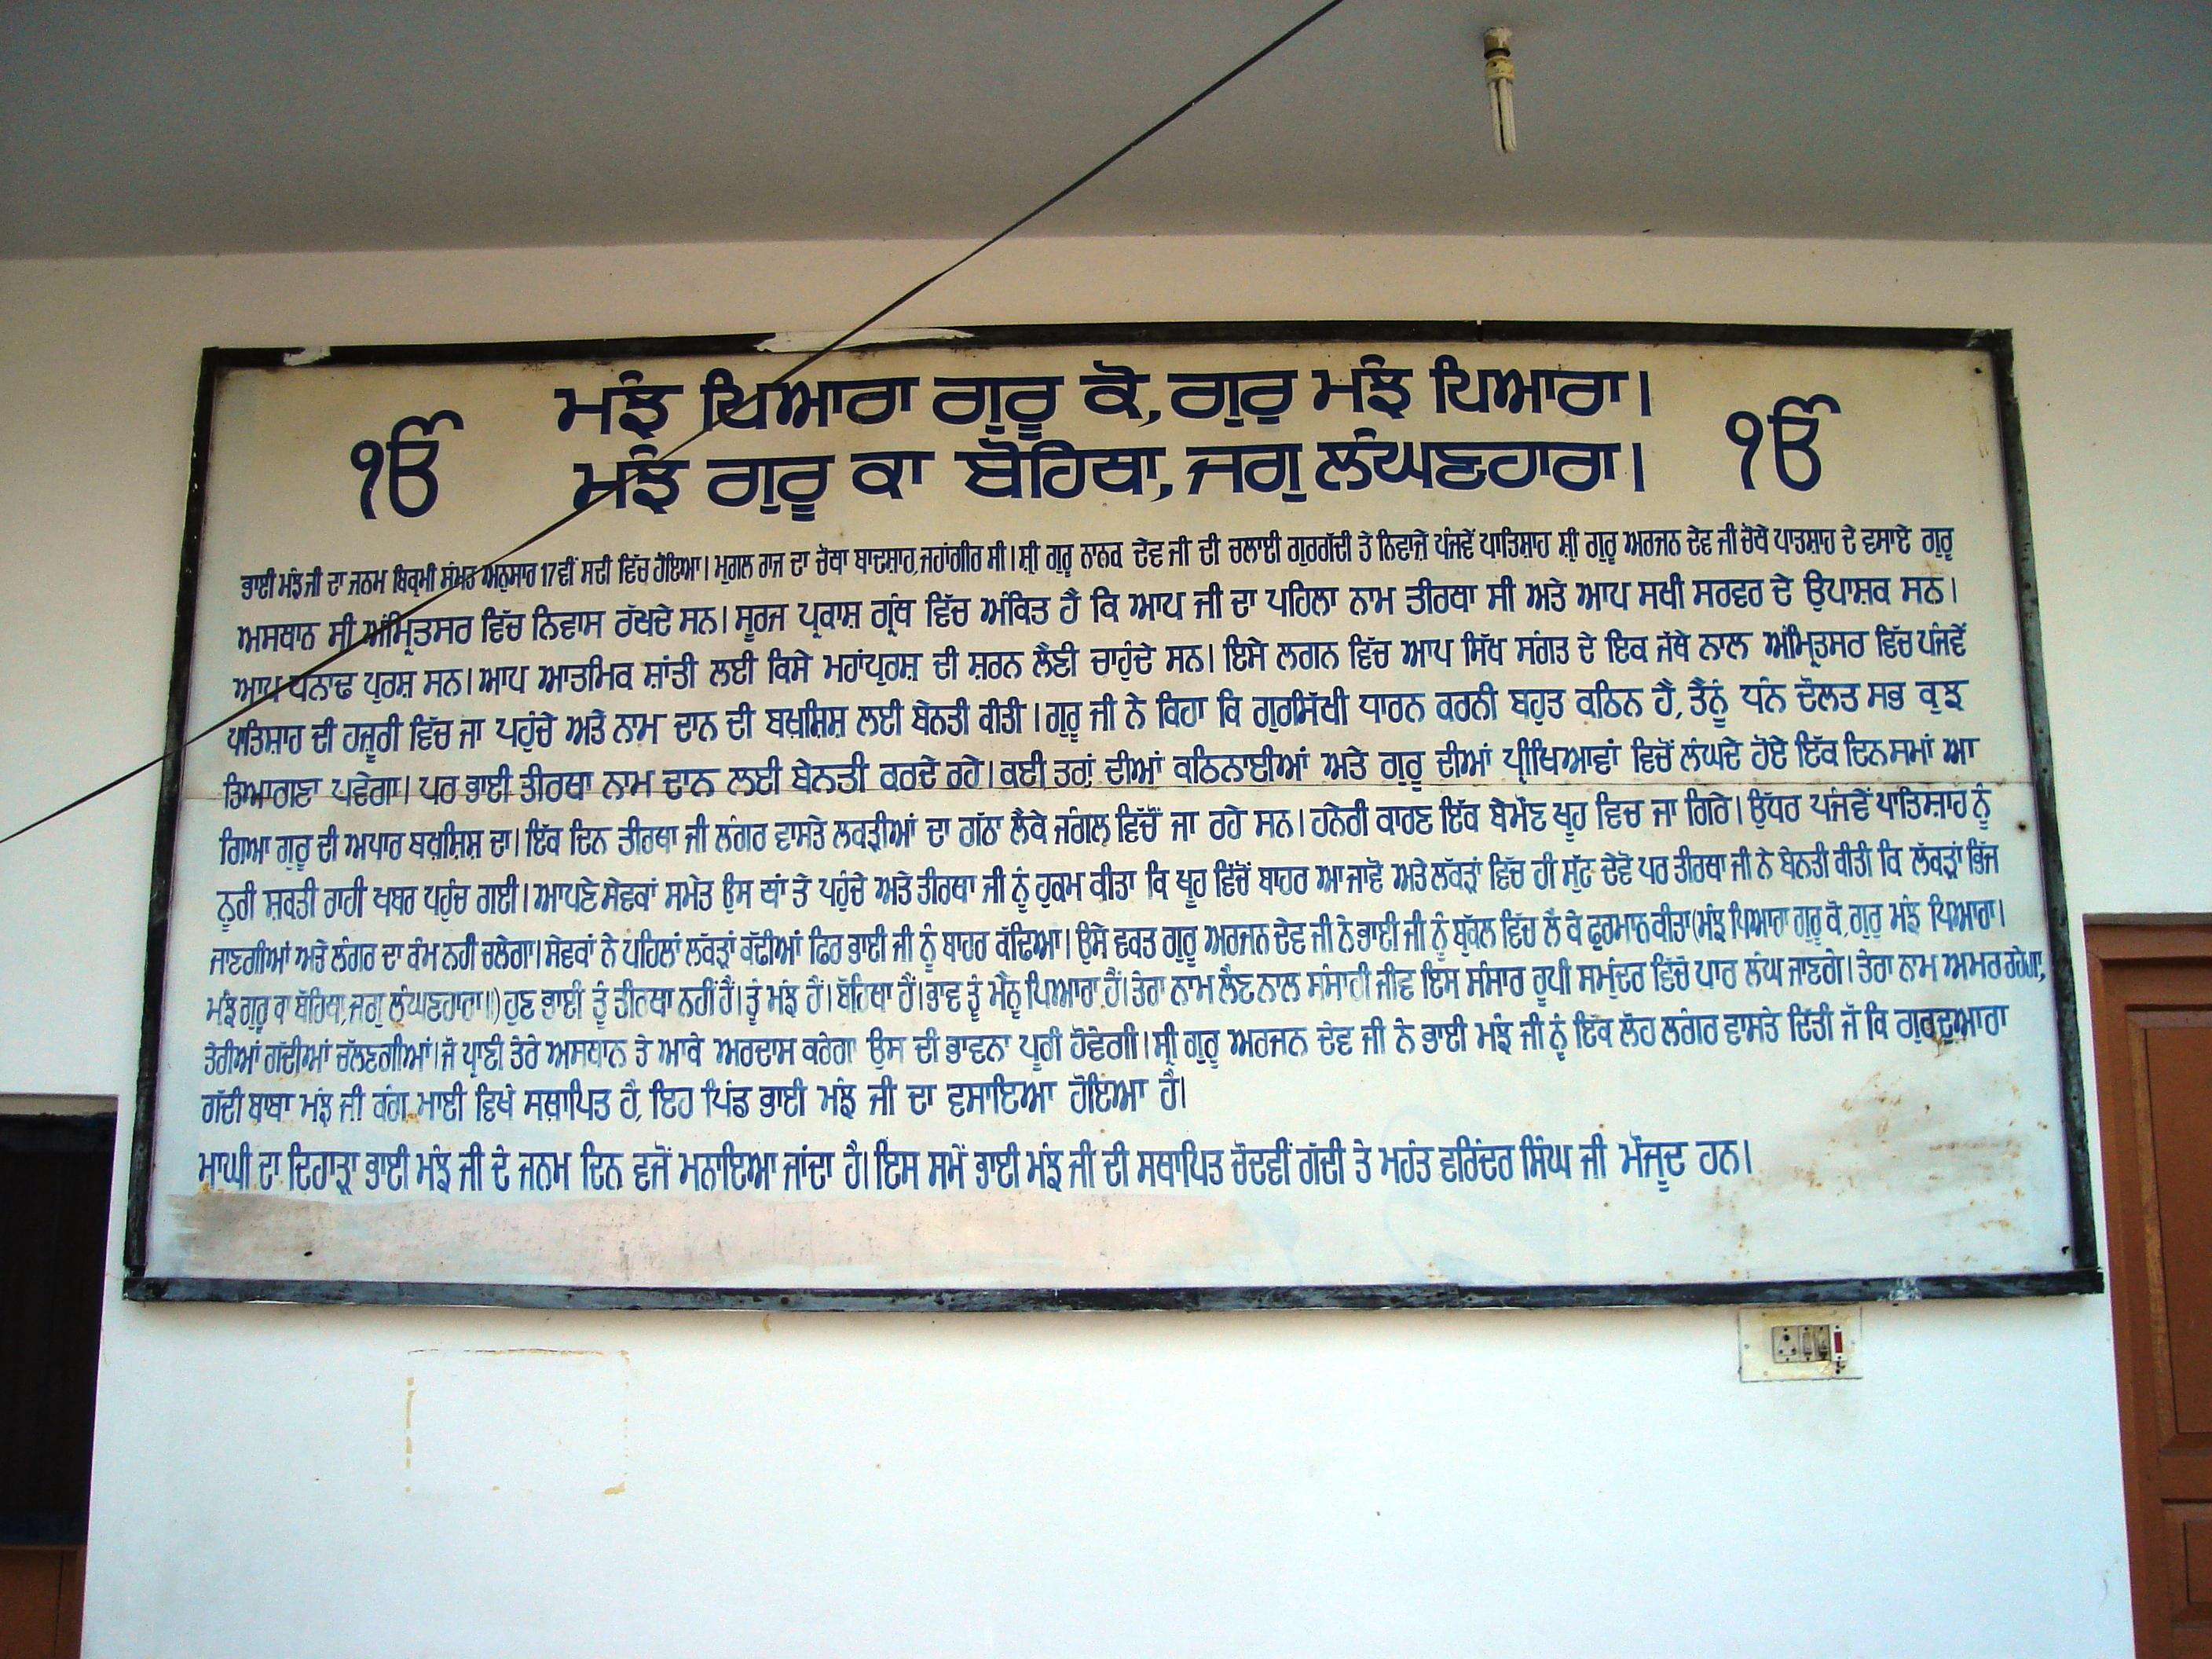 ਮੰਝ ਪਿਆਰਾ ਗੁਰੂ ਕੋ, ਗੁਰੁ ਮੰਝ ਪਿਆਰਾ।
ੴ ਮੰਝ ਗੁਰੂ ਕਾ ਬੋਹਿਥਾ, ਜਗੁ ਲੰਘਣਹਾਰਾ। ੴ
ਭਾਈ ਮੰਝ ਜੀ ਦਾ ਜਨਮ ਬਿਕ੍ਰਮੀ ਸੰਮਤ ਅਨੁਸਾਰ 17ਵੀਂ ਸਦੀ ਵਿੱਚ ਹੋਇਆ। ਮੁਗਲ ਰਾਜ ਦਾ ਚੋਥਾ ਬਾਦਸ਼ਾਹ, ਜਹਾਂਗੀਰ ਸੀ। ਸ੍ਰੀ ਗੁਰੂ ਨਾਨਕ ਦੇਵ ਜੀ ਦੀ ਚਲਾਈ ਗੁਰਗੱਦੀ ਤੇ ਨਿਵਾਜੇ ਪੰਜਵੇਂ ਪਾਤਿਸ਼ਾਹ ਸ੍ਰੀ ਗੁਰੂ ਅਰਜਨ ਦੇਵ ਜੀ ਚੋਥੇ ਪਾਤਸ਼ਾਹ ਦੇ ਵਸਾਏ ਗੁਰੂ
ਅਸਥਾਨ ਸ੍ਰੀ ਅੰਮ੍ਰਿਤਸਰ ਵਿੱਚ ਨਿਵਾਸ ਰੱਖਦੇ ਸਨ। ਸੂਰਜ ਪ੍ਰਕਾਸ਼ ਗ੍ਰੰਥ ਵਿੱਚ ਅੰਕਿਤ ਹੈ ਕਿ ਆਪ ਜੀ ਦਾ ਪਹਿਲਾ ਨਾਮ ਤੀਰਥਾ ਸੀ ਅਤੇ ਆਪ ਸਖੀ ਸਰਵਰ ਦੇ ਉਪਾਸ਼ਕ ਸਨ।
ਆਪ ਧਨਾਢ ਪੁਰਸ਼ ਸਨ। ਆਪ ਆਤਮਿਕ ਸ਼ਾਂਤੀ ਲਈ ਕਿਸੇ ਮਹਾਂਪੁਰਸ਼ ਦੀ ਸ਼ਰਨ ਲੈਣੀ ਚਾਹੁੰਦੇ ਸਨ। ਇਸੇ ਲਗਨ ਵਿੱਚ ਆਪ ਸਿੱਖ ਸੰਗਤ ਦੇ ਇਕ ਜੱਥੇ ਨਾਲ ਅੰਮ੍ਰਿਤਸਰ ਵਿੱਚ ਪੰਜਵੇਂ
ਪਾਤਿਸ਼ਾਹ ਦੀ ਹਜ਼ੂਰੀ ਵਿੱਚ ਜਾ ਪਹੁੰਚੇ ਅਤੇ ਨਾਮ ਦਾਨ ਦੀ ਬਖ਼ਸ਼ਿਸ਼ ਲਈ ਬੇਨਤੀ ਕੀਤੀ। ਗੁਰੂ ਜੀ ਨੇ ਕਿਹਾ ਕਿ ਗੁਰਸਿੱਖੀ ਧਾਰਨ ਕਰਨੀ ਬਹੁਤ ਕਠਿਨ ਹੈ, ਤੈਨੂੰ ਧੰਨ ਦੌਲਤ ਸਭ ਕੁਝ
ਤਿਆਗਣਾ ਪਵੇਗਾ। ਪਰ ਭਾਈ ਤੀਰਥਾ ਨਾਮ ਦਾਨ ਲਈ ਬੇਨਤੀ ਕਰਦੇ ਰਹੇ। ਕਈ ਤਰਾਂ ਦੀਆਂ ਕਠਿਨਾਈਆਂ ਅਤੇ ਗੁਰੂ ਦੀਆਂ ਪ੍ਰੀਖਿਆਵਾਂ ਵਿਚੋਂ ਲੰਘਦੇ ਹੋਏ ਇੱਕ ਦਿਨ ਸਮਾਂ ਆ
ਗਿਆ ਗੁਰੂ ਦੀ ਅਪਾਰ ਬਖ਼ਸ਼ਿਸ਼ ਦਾ। ਇੱਕ ਦਿਨ ਤੀਰਥਾ ਜੀ ਲੰਗਰ ਵਾਸਤੇ ਲਕੜੀਆਂ ਦਾ ਗੱਠਾ ਲੈਕੇ ਜੰਗਲ ਵਿੱਚੋਂ ਜਾ ਰਹੇ ਸਨ। ਹਨੇਰੀ ਕਾਰਣ ਇੱਕ ਬੇਮੌਣ ਖੂਹ ਵਿਚ ਜਾ ਗਿਰੇ। ਉਧਰ ਪੰਜਵੇਂ ਪਾਤਿਸ਼ਾਹ ਨੂੰ
ਨੂਰੀ ਸ਼ਕਤੀ ਰਾਹੀ ਖਬਰ ਪਹੁੰਚ ਗਈ। ਆਪਣੇ ਸੇਵਕਾਂ ਸਮੇਤ ਉਸ ਥਾਂ ਤੇ ਪਹੁੰਚੇ ਅਤੇ ਤੀਰਥਾ ਜੀ ਨੂੰ ਹੁਕਮ ਕੀਤਾ ਕਿ ਖੂਹ ਵਿੱਚੋਂ ਬਾਹਰ ਆ ਜਾਵੋ ਅਤੇ ਲੱਕੜਾਂ ਵਿੱਚ ਹੀ ਸੁੱਟ ਦੇਵੋ ਪਰ ਤੀਰਥਾ ਜੀ ਨੇ ਬੇਨਤੀ ਕੀਤੀ ਕਿ ਲੱਕੜਾਂ ਭਿੱਜ
ਜਾਣਗੀਆਂ ਅਤੇ ਲੰਗਰ ਦਾ ਕੰਮ ਨਹੀ ਚਲੇਗਾ। ਸੇਵਕਾਂ ਨੇ ਪਹਿਲਾਂ ਲੱਕੜਾਂ ਕੱਢੀਆਂ ਫਿਰ ਭਾਈ ਜੀ ਨੂੰ ਬਾਹਰ ਕੱਢਿਆ। ਉਸੇ ਵਕਤ ਗੁਰੂ ਅਰਜਨ ਦੇਵ ਜੀ ਨੇ ਭਾਈ ਜੀ ਨੂੰ ਬੁੱਕਲ ਵਿੱਚ ਲੈ ਕੇ ਫੁਰਮਾਨ ਕੀਤਾ (ਮੰਝ ਪਿਆਰਾ ਗੁਰੂ ਕੋ, ਗੁਰੁ ਮੰਝ ਪਿਆਰਾ।
ਮੰਝ ਗੁਰੂ ਕਾ ਬੋਹਿਥਾ, ਜਗੁ ਲੰਘਣਹਾਰਾ॥) ਹੁਣ ਭਾਈ ਤੂੰ ਤੀਰਥਾ ਨਹੀਂ ਹੈਂ। ਤੂੰ ਮੰਝ ਹੈਂ। ਬੋਹਿਥਾ ਹੈਂ। ਭਾਵ ਤੂੰ ਮੈਨੂੰ ਪਿਆਰਾ ਹੈਂ। ਤੇਰਾ ਨਾਮ ਲੈਣ ਨਾਲ ਸੰਸਾਰੀ ਜੀਵ ਇਸ ਸੰਸਾਰ ਰੂਪੀ ਸਮੁੰਦਰ ਵਿੱਚੋਂ ਪਾਰ ਲੰਘ ਜਾਣਗੇ। ਤੇਰਾ ਨਾਮ ਅਮਰ ਰਹੇਗਾ,
ਤੇਰੀਆਂ ਗੱਦੀਆਂ ਚੱਲਣਗੀਆਂ। ਜੋ ਪ੍ਰਾਣੀ ਤੇਰੇ ਅਸਥਾਨ ਤੇ ਆਕੇ ਅਰਦਾਸ ਕਰੇਗਾ ਉਸ ਦੀ ਭਾਵਨਾ ਪੂਰੀ ਹੋਵੇਗੀ। ਸ੍ਰੀ ਗੁਰੂ ਅਰਜਨ ਦੇਵ ਜੀ ਨੇ ਭਾਈ ਮੰਝ ਜੀ ਨੂੰ ਇੱਕ ਲੋਹ ਲੰਗਰ ਵਾਸਤੇ ਦਿੱਤੀ ਜੋ ਕਿ ਗੁਰਦੁਆਰਾ
ਗੱਦੀ ਬਾਬਾ ਮੰਝ ਜੀ ਕੰਗ ਮਾਈ ਵਿਖੇ ਸਥਾਪਿਤ ਹੈ, ਇਹ ਪਿੰਡ ਭਾਈ ਮੰਝ ਜੀ ਦਾ ਵਸਾਇਆ ਹੋਇਆ ਹੈ।
ਮਾਘੀ ਦਾ ਦਿਹਾੜਾ ਭਾਈ ਮੰਝ ਜੀ ਦੇ ਜਨਮ ਦਿਨ ਵਜੋਂ ਮਨਾਇਆ ਜਾਂਦਾ ਹੈ। ਇਸ ਸਮੇਂ ਭਾਈ ਮੰਝ ਜੀ ਦੀ ਸਥਾਪਿਤ ਚੋਦਵੀਂ ਗੱਦੀ ਤੇ ਮਹੰਤ ਵਰਿੰਦਰ ਸਿੰਘ ਜੀ ਮੌਜੂਦ ਹਨ।